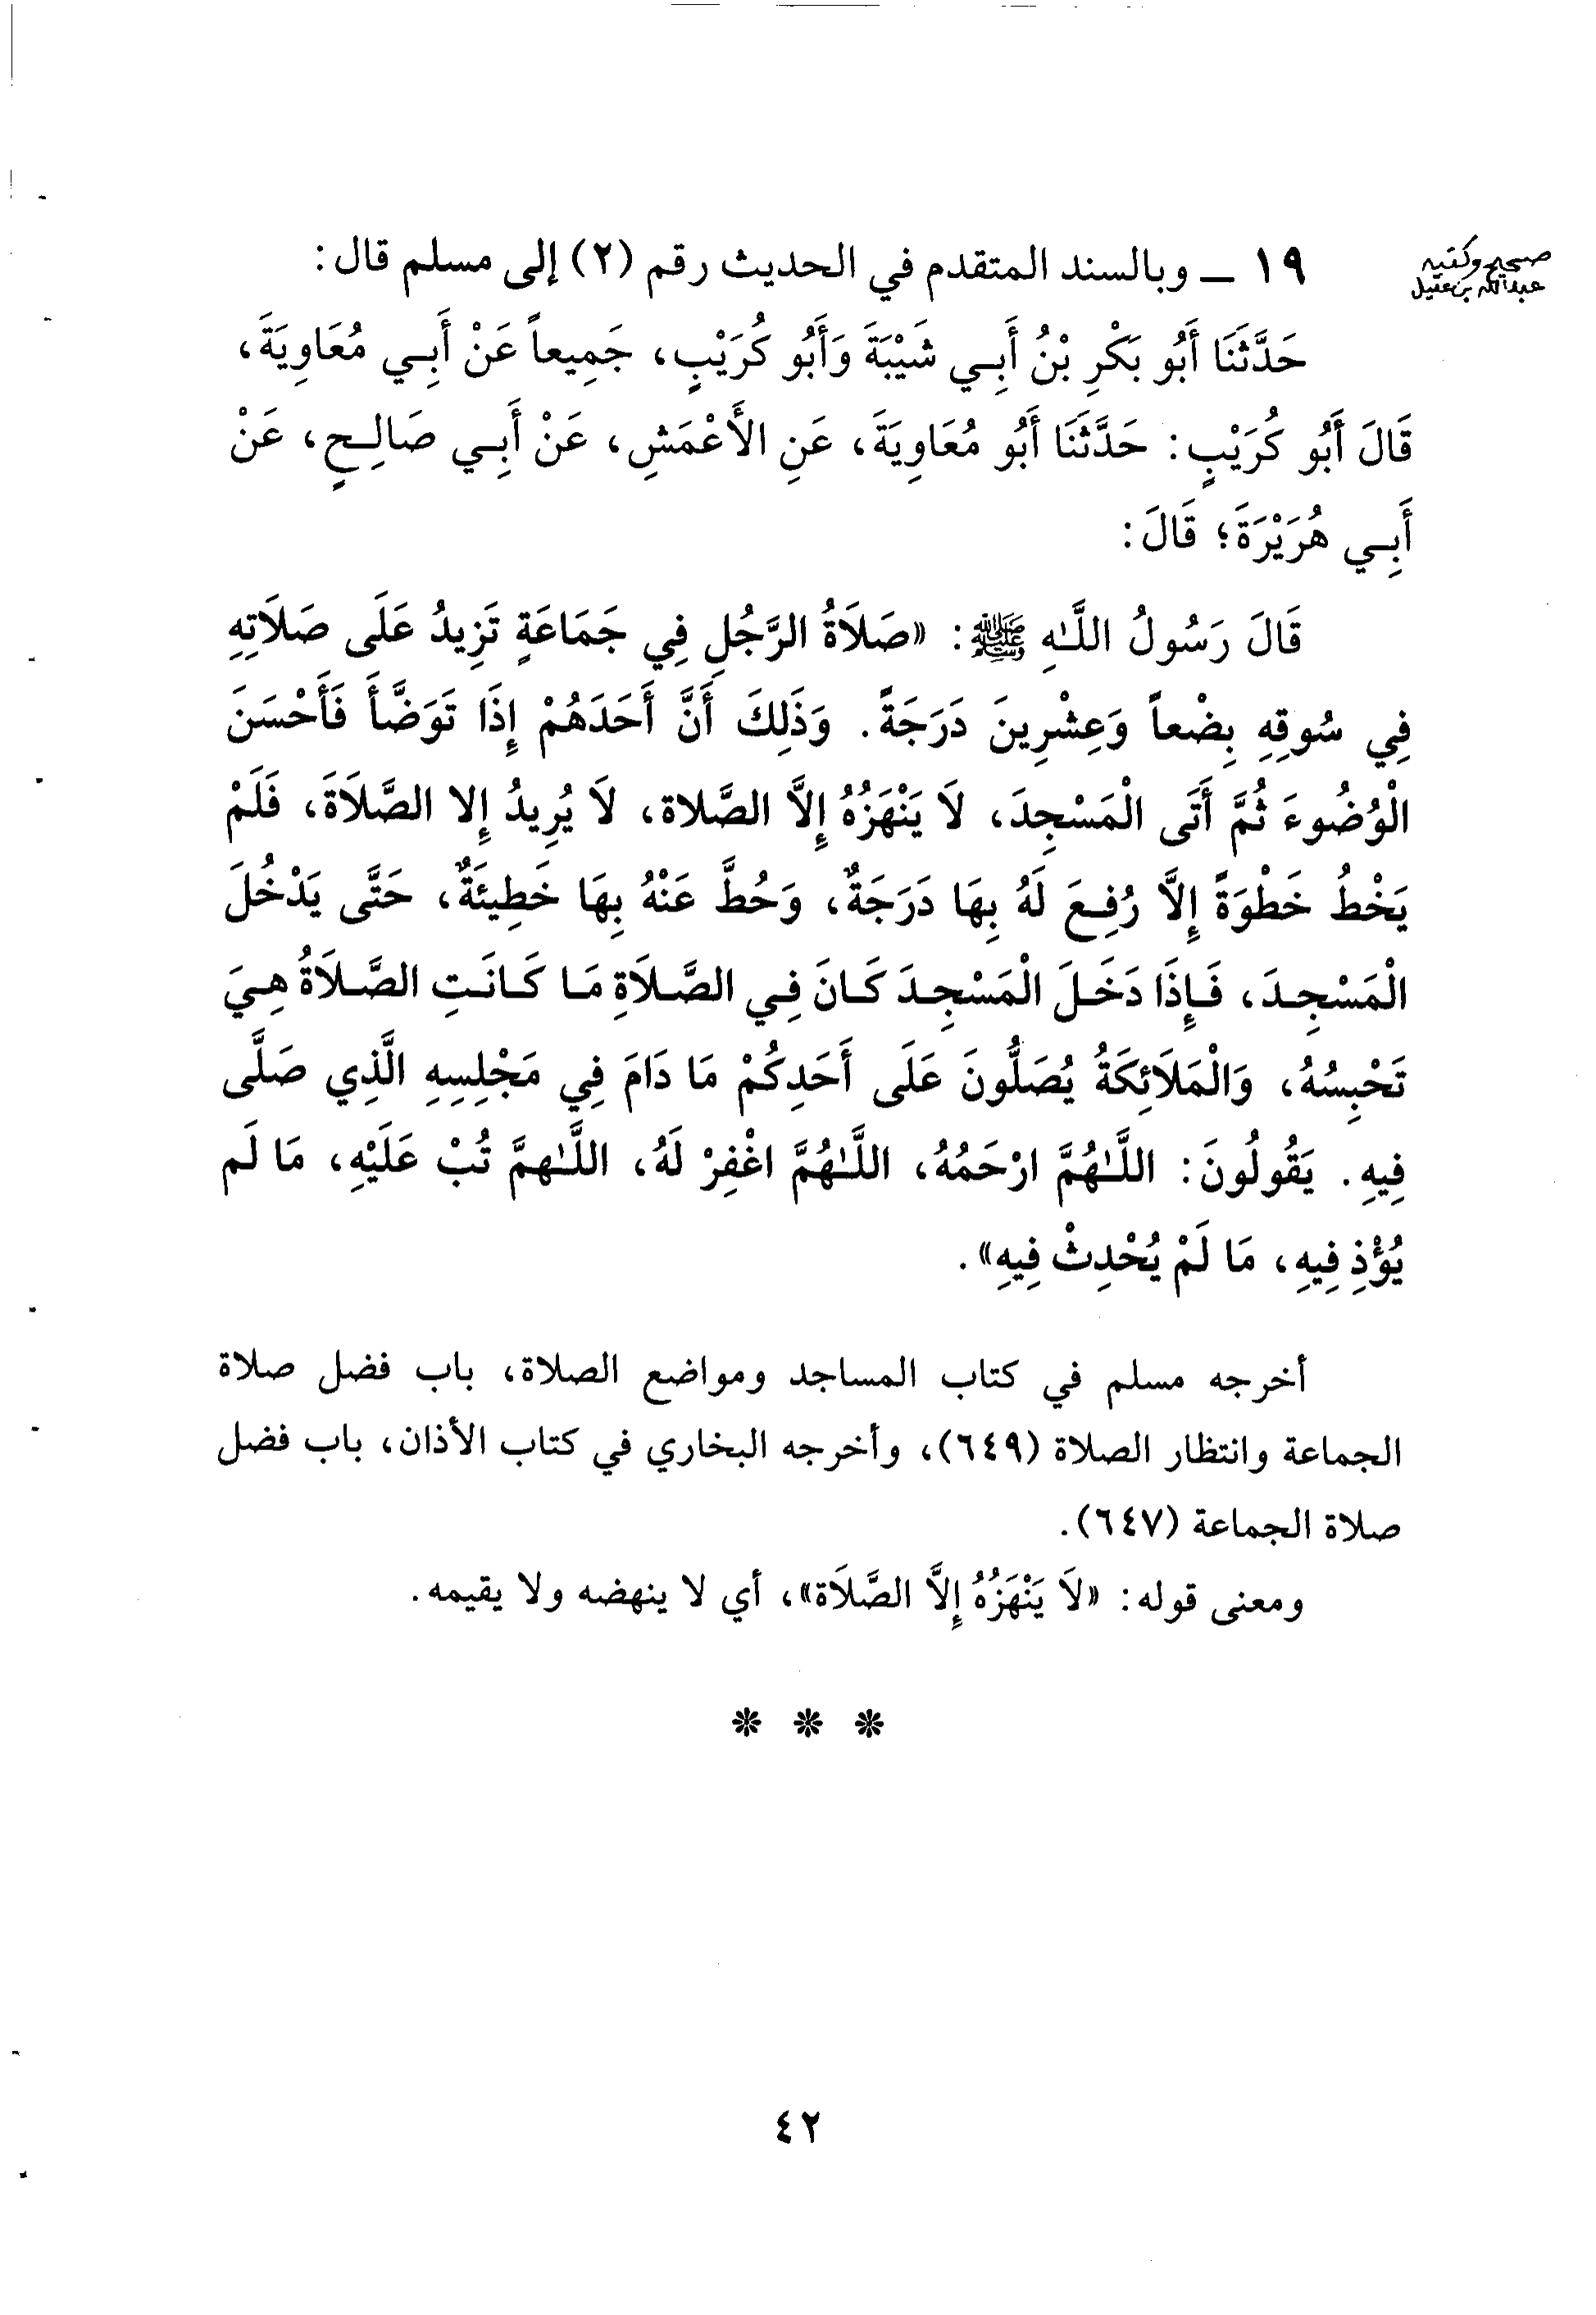 صحيح وكتبه
عبدالله بن عقيل
١٩ ــ وبالسند المتقدم في الحديث رقم (٢) إلى مسلم قال:
حَدَّثَنَا أَبُو بَكْرِ بْنُ أَبِي شَيْبَةَ وَأَبُو كُرَيْبٍ، جَمِيعاً عَنْ أَبِي مُعَاوِيَةَ،
قَالَ أَبُو كُرَيْبٍ: حَدَّثَنَا أَبُو مُعَاوِيَةَ، عَنِ الأَعْمَشِ، عَنْ أَبِي صَالِحٍ، عَنْ
أَبِي هُرَيْرَةَ؛ قَالَ:
قَالَ رَسُولُ اللَّـٰهِ ﷺ: «صَلَاةُ الرَّجُلِ فِي جَمَاعَةٍ تَزِيدُ عَلَى صَلَاتِهِ
فِي سُوقِهِ بِضْعاً وَعِشْرِينَ دَرَجَةً. وَذَلِكَ أَنَّ أَحَدَهُمْ إِذَا تَوَضَّأَ فَأَحْسَنَ
الْوُضُوءَ ثُمَّ أَتَى الْمَسْجِدَ، لَا يَنْهَزُهُ إِلَّا الصَّلاة، لَا يُرِيدُ إِلا الصَّلَاةَ، فَلَمْ
يَخْطُ خَطْوَةً إِلَّا رُفِعَ لَهُ بِهَا دَرَجَةٌ، وَحُطَّ عَنْهُ بِهَا خَطِيئَةٌ، حَتَّى يَدْخُلَ
الْمَسْجِدَ، فَإِذَا دَخَلَ الْمَسْجِدَ كَانَ فِي الصَّلَاةِ مَا كَانَتِ الصَّلَاةُ هِيَ
تَحْبِسُهُ، وَالْمَلَائِكَةُ يُصَلُّونَ عَلَى أَحَدِكُمْ مَا دَامَ فِي مَجْلِسِهِ الَّذِي صَلَّى
فِيهِ. يَقُولُونَ: اللَّـٰهُمَّ ارْحَمْهُ، اللَّـٰهُمَّ اغْفِرْ لَهُ، اللَّـٰهمَّ تُبْ عَلَيْهِ، مَا لَم
يُؤْذِ فِيهِ، مَا لَمْ يُحْدِثْ فِيهِ».
أخرجه مسلم في كتاب المساجد ومواضع الصلاة، باب فضل صلاة
الجماعة وانتظار الصلاة (٦٤٩)، وأخرجه البخاري في كتاب الأذان، باب فضل
صلاة الجماعة (٦٤٧).
ومعنى قوله: «لَا يَنْهَزُهُ إِلَّا الصَّلَاة»، أي لا ينهضه ولا يقيمه.
* * *
٤٢